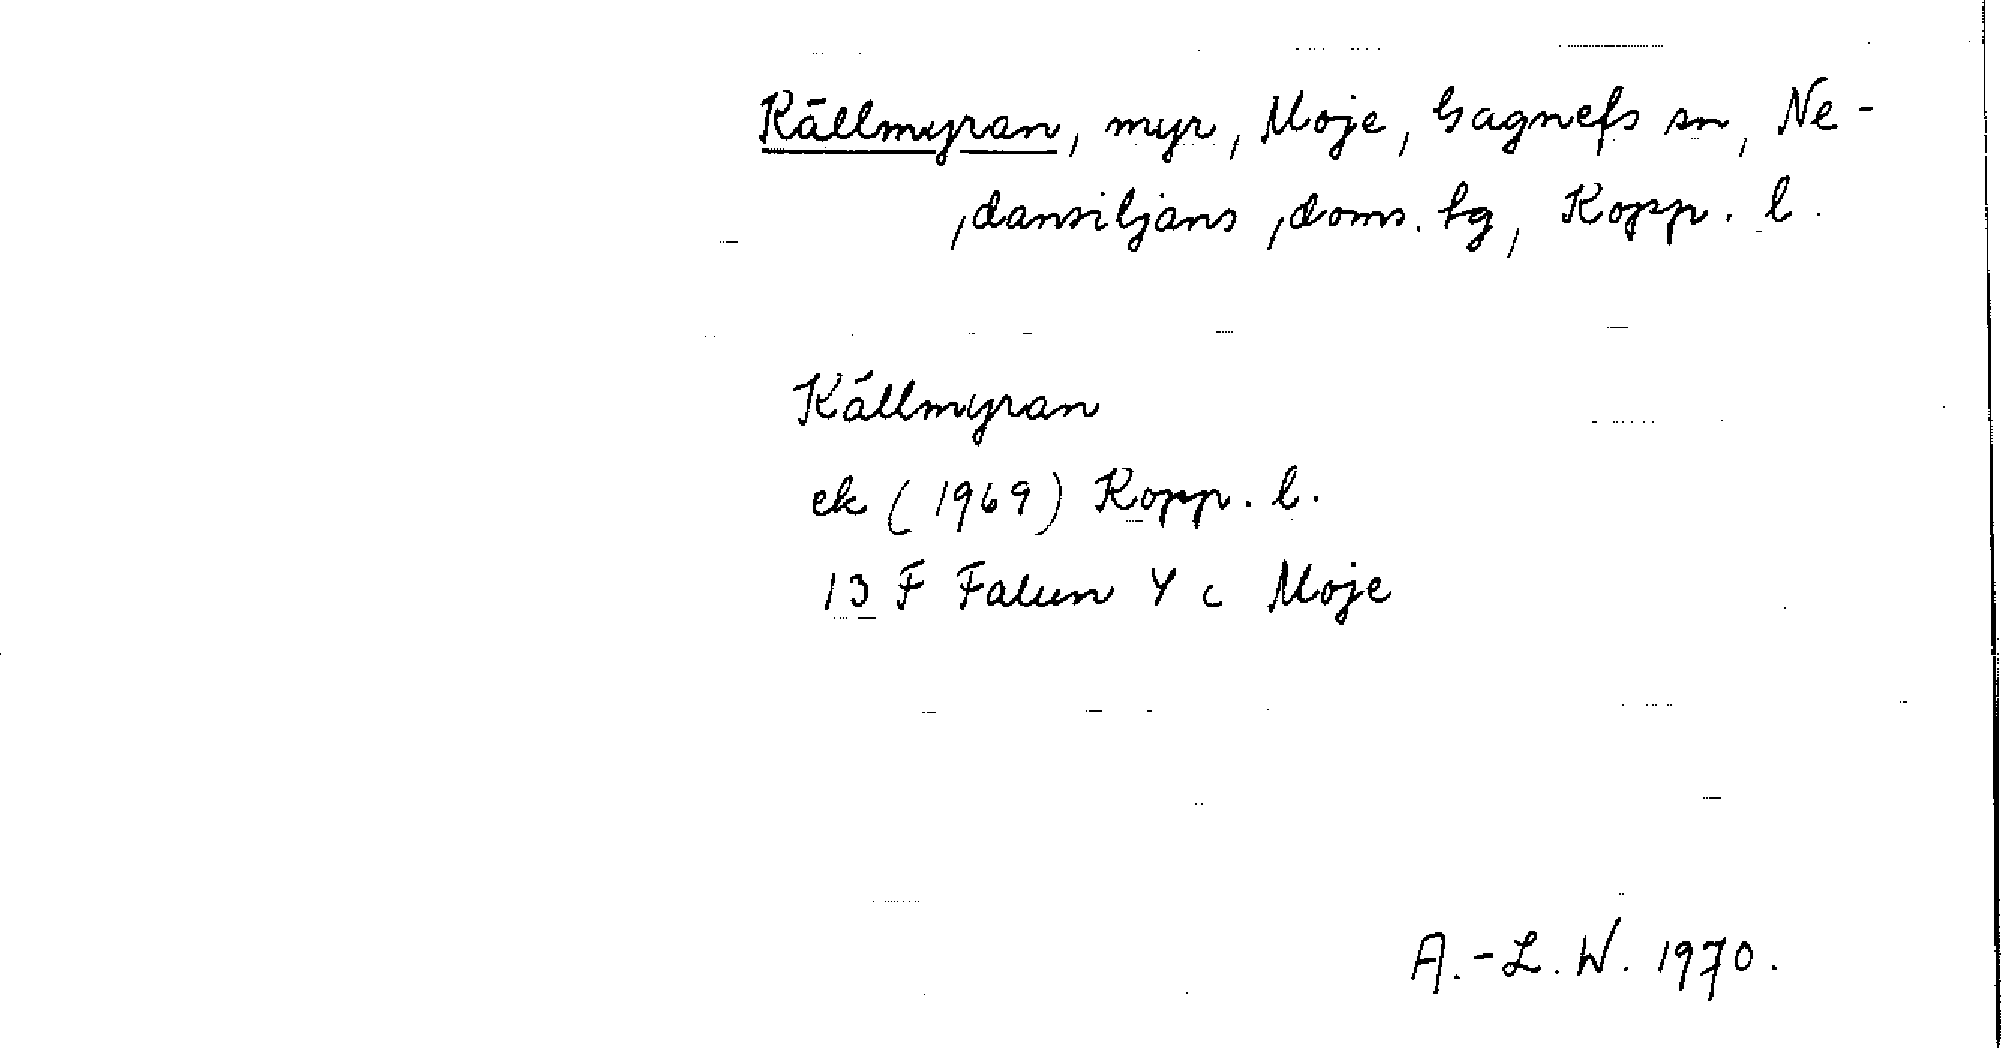 Källmyran, myr, Moje, Gagnefs sn, Ne-
dansiljans doms. hg, Kopp. l.
Källmyran
ek (1969) Kopp. l.
13 F Falun 4 c Moje
A.-L. W. 1970.